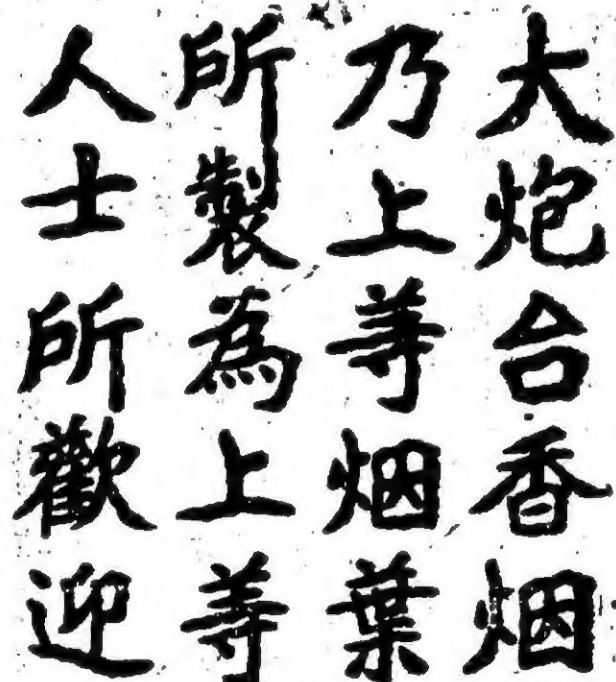 大炮台香烟
乃上等烟葉
所製為上等
人士所歡迎